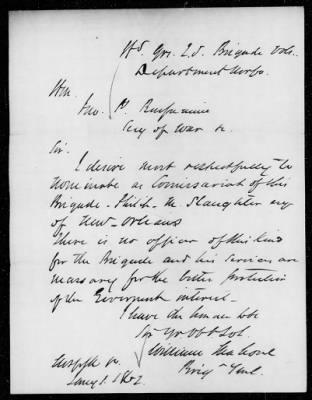 Hd. Qrs. 2d. Brigade Vols.
Department Norfo.
Hon.
Jno. P.
Secy of War &c
Sir.
I desire most respectfully to
nominate as Commissariat of this
Brigade - the Slaughter esq
of New-Orleans
There is no officer of this kind
for the Brigade and his services are
necessary for the better protection
of the Government interest -
I have the honor to be
Sir Yr Obt Svt.
William Mahone
Brig Genl.
Norfolk Va.
Jany 1. 1862.